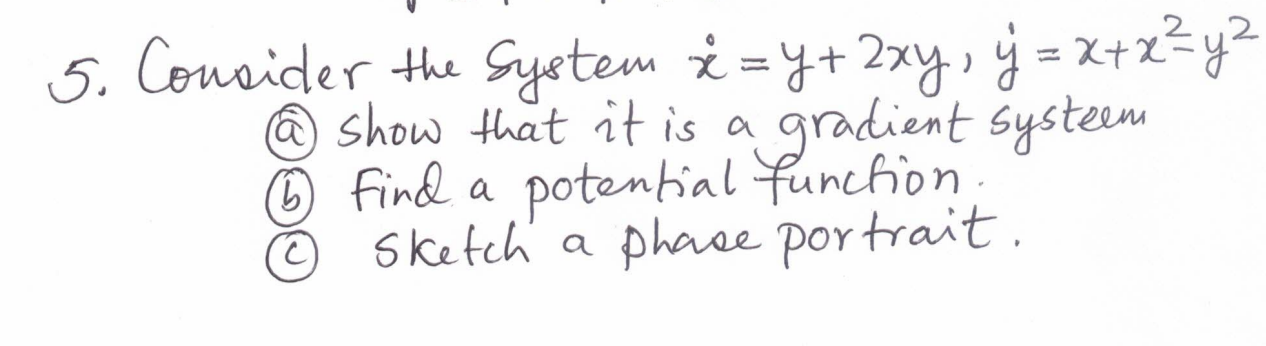 5. Consider the System ẋ = y + 2xy, ẏ = x + x² - y²
ⓐ show that it is a gradient systeem
ⓑ find a potential function.
ⓒ sketch a phase portrait.